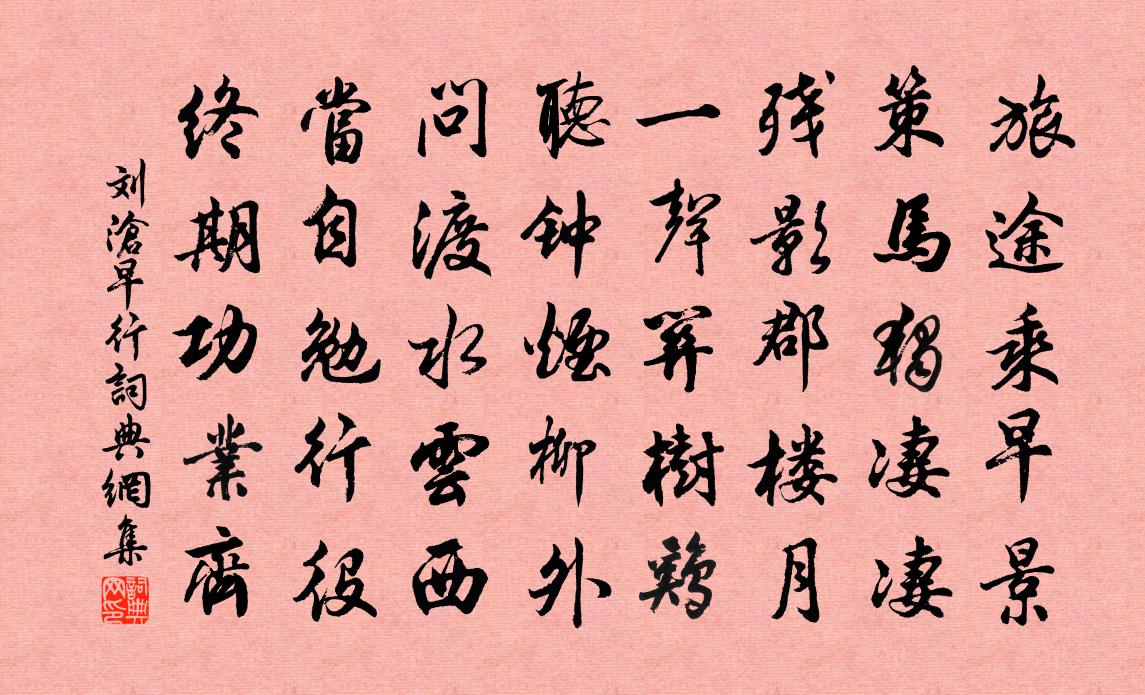 旅途乘早景
策馬獨凄凄
残影郡楼月
一聲關樹鷄
聽钟煙柳外
問渡水雲西
當自勉行役
終期功業齊
刘滄早行詞典網集
詞典网印